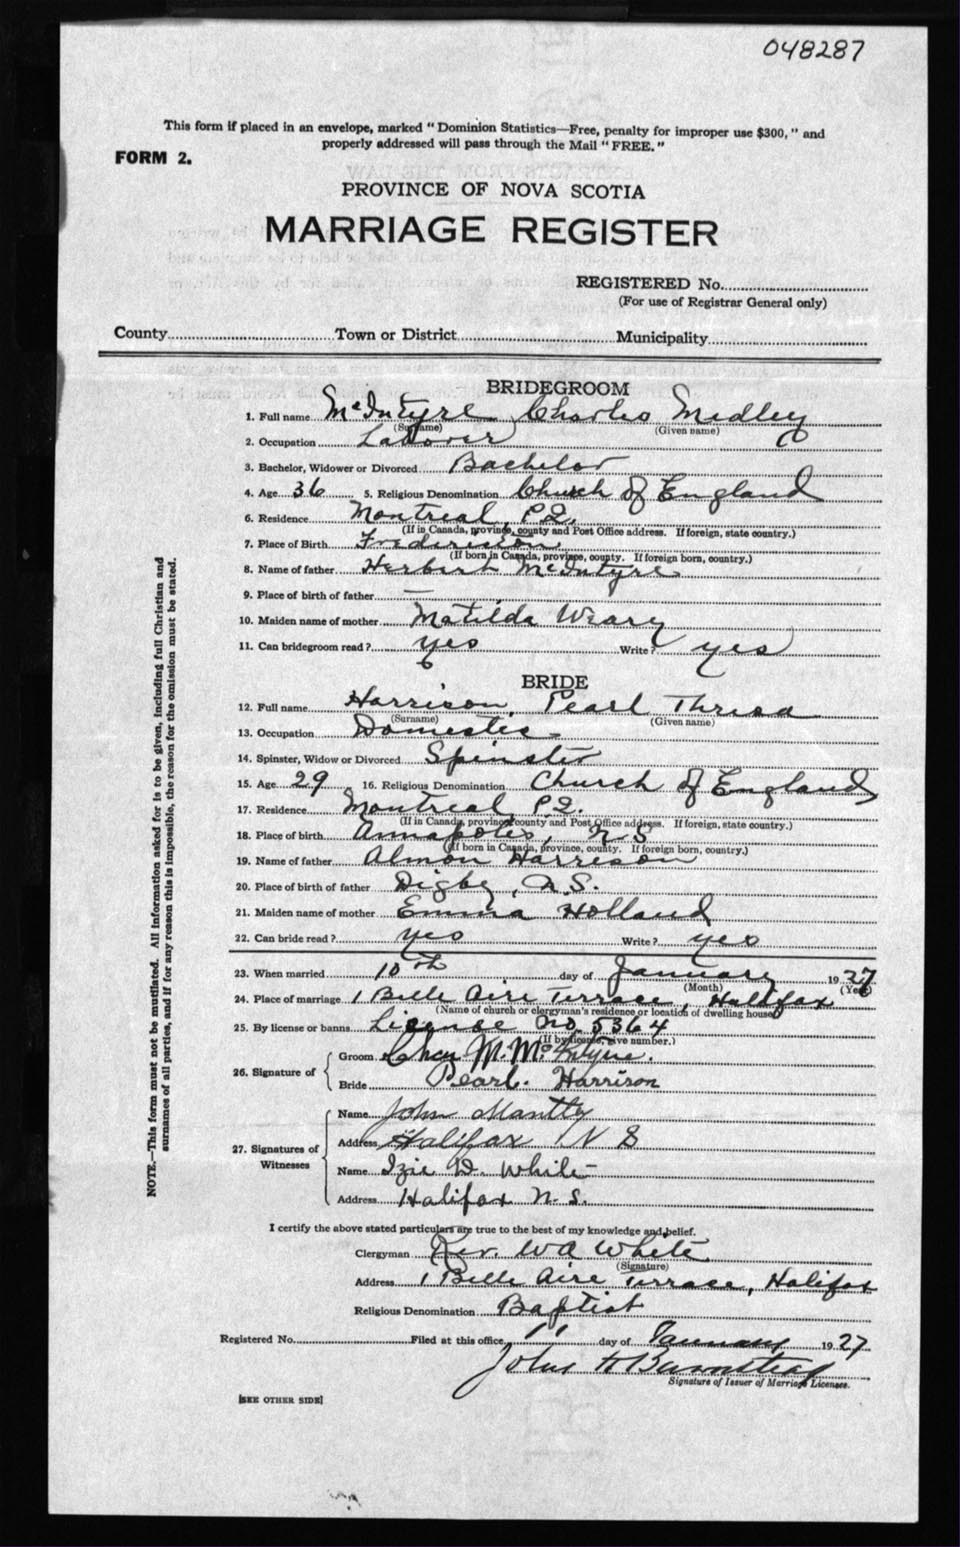 048287
This form if placed in an envelope, marked "Dominion Statistics—Free, penalty for improper use $300," and
properly addressed will pass through the Mail "FREE."
FORM 2.
PROVINCE OF NOVA SCOTIA
MARRIAGE REGISTER
REGISTERED No.
(For use of Registrar General only)
County Town or District Municipality
BRIDEGROOM
1. Full name McIntyre Charles Medley
(Surname) (Given name)
2. Occupation Laborer
3. Bachelor, Widower or Divorced Bachelor
4. Age 36 5. Religious Denomination Church of England
6. Residence Montreal, P.Q.
(If in Canada, province, county and Post Office address. If foreign, state country.)
7. Place of Birth Fredericton
(If born in Canada, province, county. If foreign born, country.)
8. Name of father Herbert McIntyre
9. Place of birth of father —
10. Maiden name of mother Matilda Weary
11. Can bridegroom read? yes Write? yes
BRIDE
12. Full name Harrison, Pearl Thresa
(Surname) (Given name)
13. Occupation Domestic
14. Spinster, Widow or Divorced Spinster
15. Age 29 16. Religious Denomination Church of England
17. Residence Montreal P.Q.
(If in Canada, province county and Post Office address. If foreign, state country.)
18. Place of birth Annapolis, N S
(If born in Canada, province, county. If foreign born, country.)
19. Name of father Almon Harrison
20. Place of birth of father Digby, N.S.
21. Maiden name of mother Emma Holland
22. Can bride read? yes Write? yes
23. When married 10th day of January 1927
(Month) (Year)
24. Place of marriage 1 Belle Aire Terrace, Halifax
(Name of church or clergyman's residence or location of dwelling house)
25. By license or banns License No. 5364
(If by license, give number.)
26. Signature of Groom Chas M. McIntyre.
Bride Pearl. Harrison
27. Signatures of Witnesses Name John
Address Halifax N S
Name Izie D. White
Address Halifax N. S.
I certify the above stated particulars are true to the best of my knowledge and belief.
Clergyman Rev. W A White
(Signature)
Address 1 Belle Aire Terrace, Halifax
Religious Denomination Baptist
Registered No. Filed at this office 11 day of January 1927
John H
Signature of Issuer of Marriage Licenses.
[SEE OTHER SIDE]
NOTE.—This form must not be mutilated. All information asked for is to be given, including full Christian and
surnames of all parties, and if for any reason this is impossible, the reason for the omission must be stated.